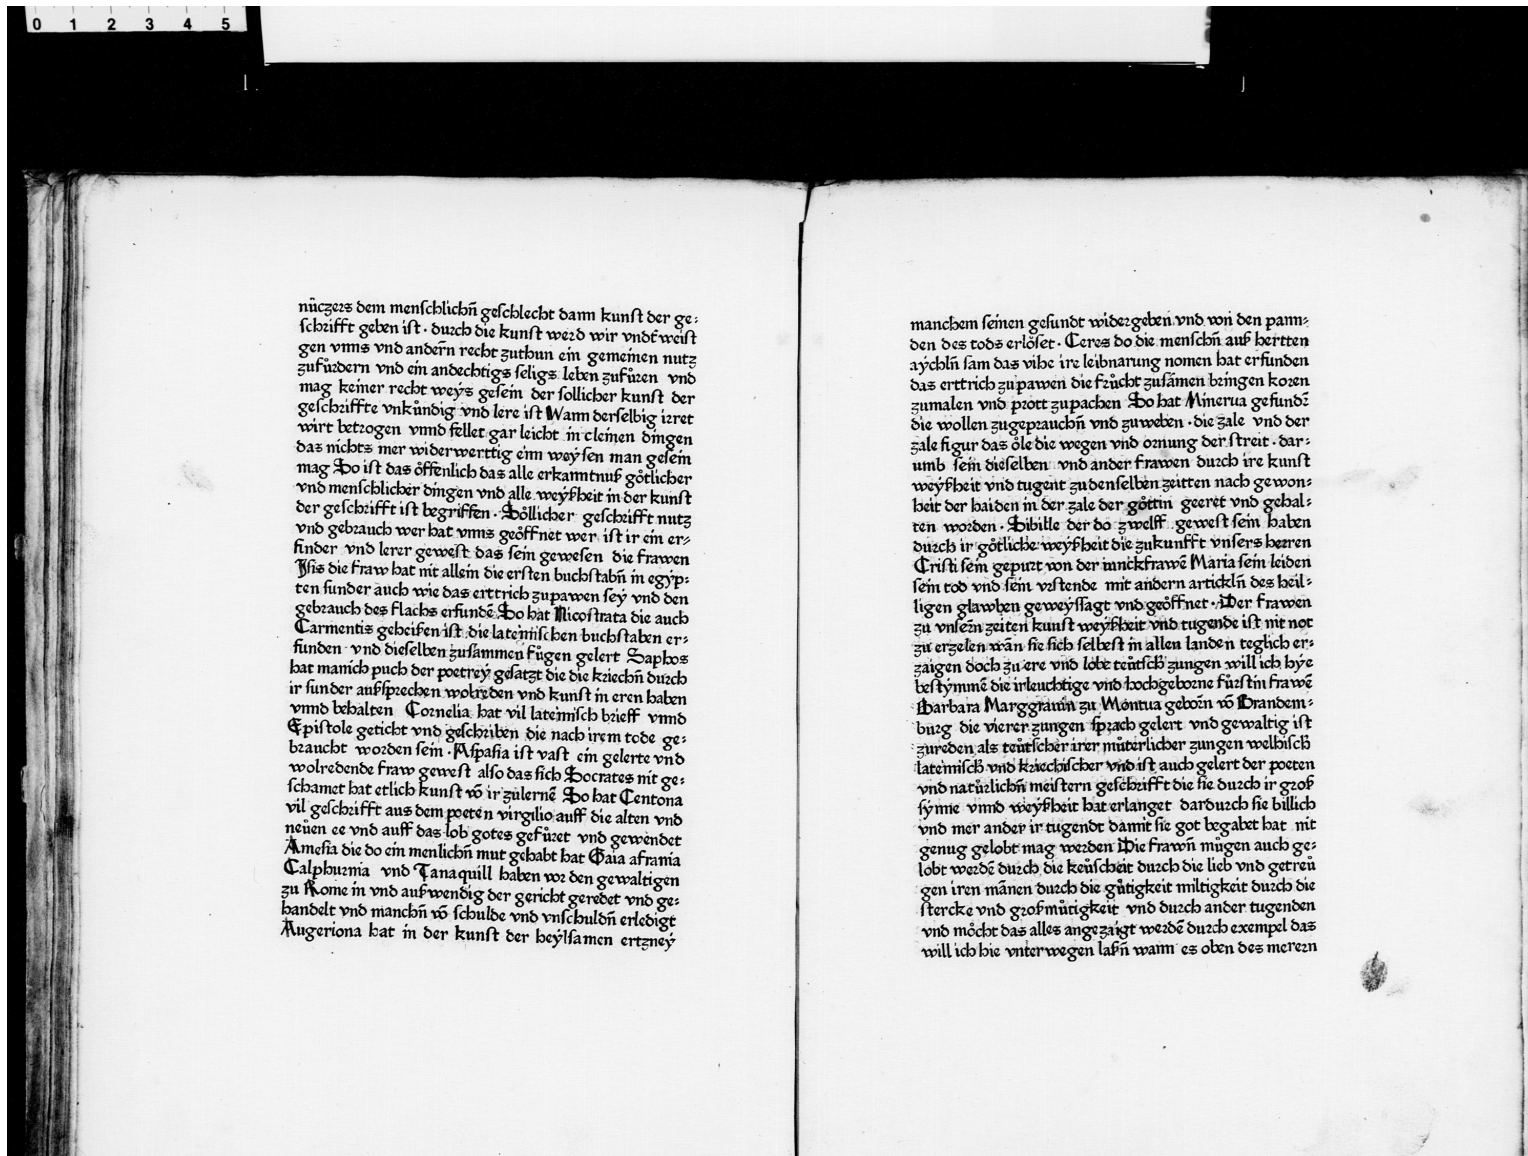 0 1 2 3 4 5
nüczers dem menschlichn̄ geschlecht dann kunst der ge⸗
schrifft geben ist · durch die kunst werd wir vndt̄weist
gen vnns vnd andern̄ recht zuthun ein gemeinen nutz
zufůrdern vnd ein andechtigs seligs leben zufůren vnd
mag keiner recht weýs gesein der sollicher kunst der
geschriffte vnkůndig vnd lere ist Wann derselbig irret
wirt betrogen vnnd fellet gar leicht in cleinen dingen
das nichts mer widerwerttig einn weýsen man gesein
mag So ist das ôffenlich das alle erkanntnuß gôtlicher
vnd menschlicher dingen vnd alle weýßheit in der kunst
der geschrifft ist begriffen · Sôllicher geschrifft nutz
vnd gebrauch wer hat vnns geôffnet wer ist ir ein er⸗
finder vnd lerer gewest das sein gewesen die frawen
Isis die fraw hat nit allein die ersten buchstabn̄ in egýp⸗
ten sunder auch wie das erttrich zupawen seý vnd den
gebrauch des flachs erfundē So hat Nicostrata die auch
Carmentis geheißen ist die lateinischen buchstaben er⸗
funden vnd dieselben zusammen fůgen gelert Saphos
hat manich puch der poetreý gesatzt die die kriechn̄ durch
ir sunder außsprechen wolreden vnd kunst in eren haben
vnnd behalten Cornelia hat vil lateinisch brieff vnnd
Epistole geticht vnd geschriben die nach irem tode ge⸗
braucht worden sein · Aspasia ist vast ein gelerte vnd
wolredende fraw gewest also das sich Socrates nit ge⸗
schamet hat etlich kunst vō ir zulernē So hat Centona
vil geschrifft aus dem poeten virgilio auff die alten vnd
neůen ee vnd auff das lob gotes gefůret vnd gewendet
Amesia die do ein menlichn̄ mut gehabt hat Gaia afrania
Calphurnia vnd Tanaquill haben vor den gewaltigen
zu Rome in vnd außwendig der gericht geredet vnd ge⸗
handelt vnd manchn̄ vō schulde vnd vnschuldn̄ erledigt
Augeriona hat in der kunst der heýlsamen ertzneý
manchem seinen gesundt widergeben vnd von den pann⸗
den des tods erlôset · Ceres do die menschn̄ auß hertten
aýchln̄ sam das vihe ire leibnarung nomen hat erfunden
das erttrich zupawen die frůcht zusāmen bringen koren
zumalen vnd prott zupachen So hat Minerua gefundn̄
die wollen zugeprauchn̄ vnd zuweben · die zale vnd der
zale figur das ôle die wegen vnd ornung der streit · dar⸗
umb sein dieselben vnd ander frawen durch ire kunst
weýßheit vnd tugent zu denselben zeitten nach gewon⸗
heit der haiden in der zale der gôttin geeret vnd gehal⸗
ten worden · Sibille der do zwelff gewest sein haben
durch ir gôtliche weýßheit die zukunfft vnsers herren
Cristi sein gepurt von der iunckfrawē Maria sein leiden
sein tod vnd sein vrstende mit andern artickln̄ des heil⸗
ligen glawben geweýssagt vnd geôffnet · Der frawen
zu vnsern̄ zeiten kunst weýßheit vnd tugende ist nit not
zu erzelen wān sie sich selbest in allen landen teglich er⸗
zaigen doch zu ere vnd lobe teůtsch zungen will ich hýe
bestýmmē die irleuchtige vnd hochgeborne fůrstin frawē
Barbara Marggrauin zu Montua geborn vō Brandem⸗
burg die vierer zungen sprach gelert vnd gewaltig ist
zureden als teůtscher irer můterlicher zungen welhisch
lateinisch vnd kriechischer vnd ist auch gelert der poeten
vnd natůrlichn̄ meistern geschrifft die sie durch ir groß
sýnne vnnd weýßheit hat erlanget dardurch sie billich
vnd mer ander ir tugendt damit sie got begabet hat nit
genug gelobt mag werden Die frawn̄ můgen auch ge⸗
lobt werdē durch die keůscheit durch die lieb vnd getreů
gen iren mānen durch die gůtigkeit miltigkeit durch die
stercke vnd großmůtigkeit vnd durch ander tugenden
vnd môcht das alles angezaigt werdē durch exempel das
will ich hie vnterwegen laßn̄ wann es oben des merern